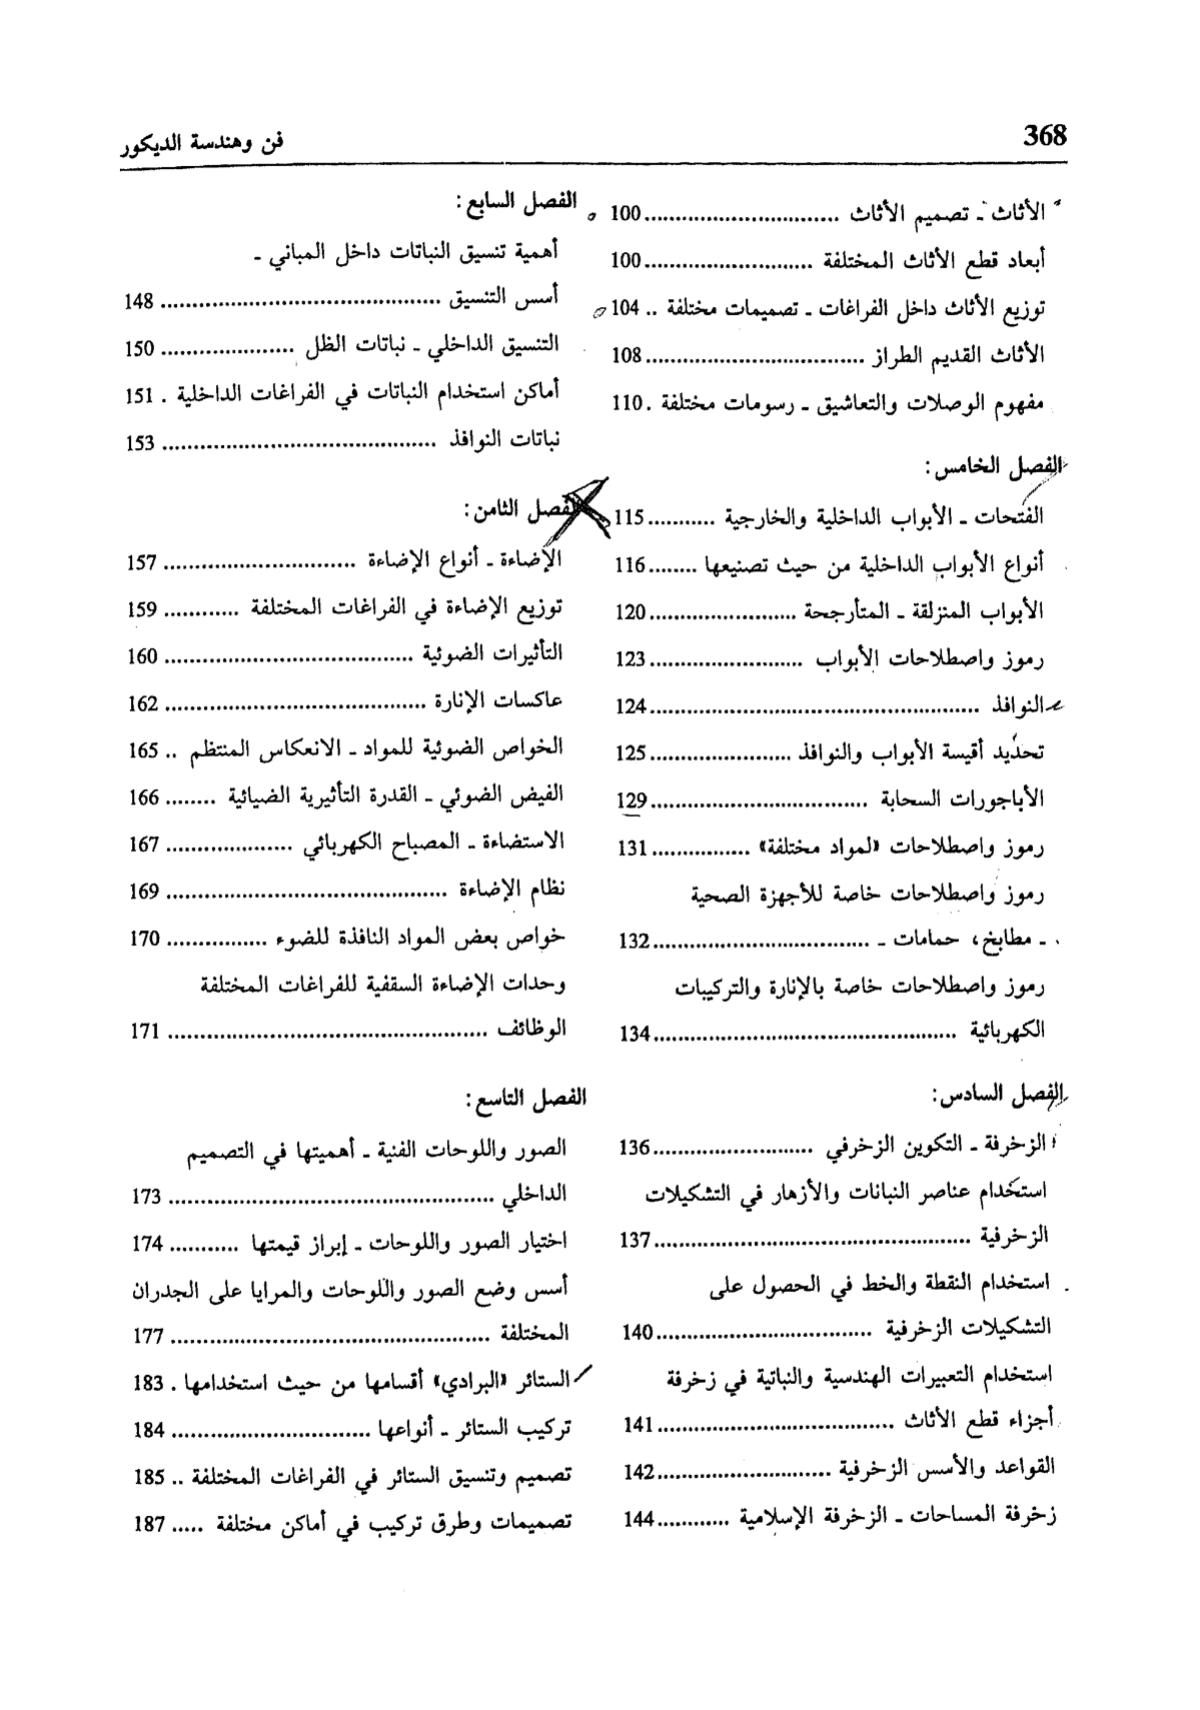 368
فن وهندسة الديكور
الأثاث - تصميم الأثاث ............................... 100
أبعاد قطع الأثاث المختلفة ........................... 100
توزيع الأثاث داخل الفراغات - تصميمات مختلفة .. 104
الأثاث القديم الطراز ................................... 108
مفهوم الوصلات والتعاشيق - رسومات مختلفة . 110
الفصل الخامس:
الفتحات - الأبواب الداخلية والخارجية ........... 115
أنواع الأبواب الداخلية من حيث تصنيعها ........ 116
الأبواب المنزلقة - المتأرجحة ........................ 120
رموز واصطلاحات الأبواب ......................... 123
النوافذ ..................................................... 124
تحديد أقيسة الأبواب والنوافذ ....................... 125
الأباجورات السحابة ................................... 129
رموز واصطلاحات «لمواد مختلفة» ................ 131
رموز واصطلاحات خاصة للأجهزة الصحية
- مطابخ، حمامات - ................................... 132
رموز واصطلاحات خاصة بالإنارة والتركيبات
الكهربائية ................................................ 134
الفصل السادس:
الزخرفة - التكوين الزخرفي .......................... 136
استخدام عناصر النباتات والأزهار في التشكيلات
الزخرفية ................................................... 137
استخدام النقطة والخط في الحصول على
التشكيلات الزخرفية ................................... 140
استخدام التعبيرات الهندسية والنباتية في زخرفة
أجزاء قطع الأثاث ...................................... 141
القواعد والأسس الزخرفية ............................ 142
زخرفة المساحات - الزخرفة الإسلامية ............ 144
الفصل السابع:
أهمية تنسيق النباتات داخل المباني -
أسس التنسيق ............................................. 148
التنسيق الداخلي - نباتات الظل ..................... 150
أماكن استخدام النباتات في الفراغات الداخلية . 151
نباتات النوافذ ............................................ 153
الفصل الثامن:
الإضاءة - أنواع الإضاءة ............................... 157
توزيع الإضاءة في الفراغات المختلفة ............ 159
التأثيرات الضوئية ........................................ 160
عاكسات الإنارة .......................................... 162
الخواص الضوئية للمواد - الانعكاس المنتظم .. 165
الفيض الضوئي - القدرة التأثيرية الضيائية ........ 166
الاستضاءة - المصباح الكهربائي .................... 167
نظام الإضاءة ............................................. 169
خواص بعض المواد النافذة للضوء ................ 170
وحدات الإضاءة السقفية للفراغات المختلفة
الوظائف ................................................... 171
الفصل التاسع:
الصور واللوحات الفنية - أهميتها في التصميم
الداخلي .................................................... 173
اختيار الصور واللوحات - إبراز قيمتها ........... 174
أسس وضع الصور واللوحات والمرايا على الجدران
المختلفة ................................................... 177
الستائر «البرادي» أقسامها من حيث استخدامها . 183
تركيب الستائر - أنواعها ............................... 184
تصميم وتنسيق الستائر في الفراغات المختلفة .. 185
تصميمات وطرق تركيب في أماكن مختلفة ..... 187